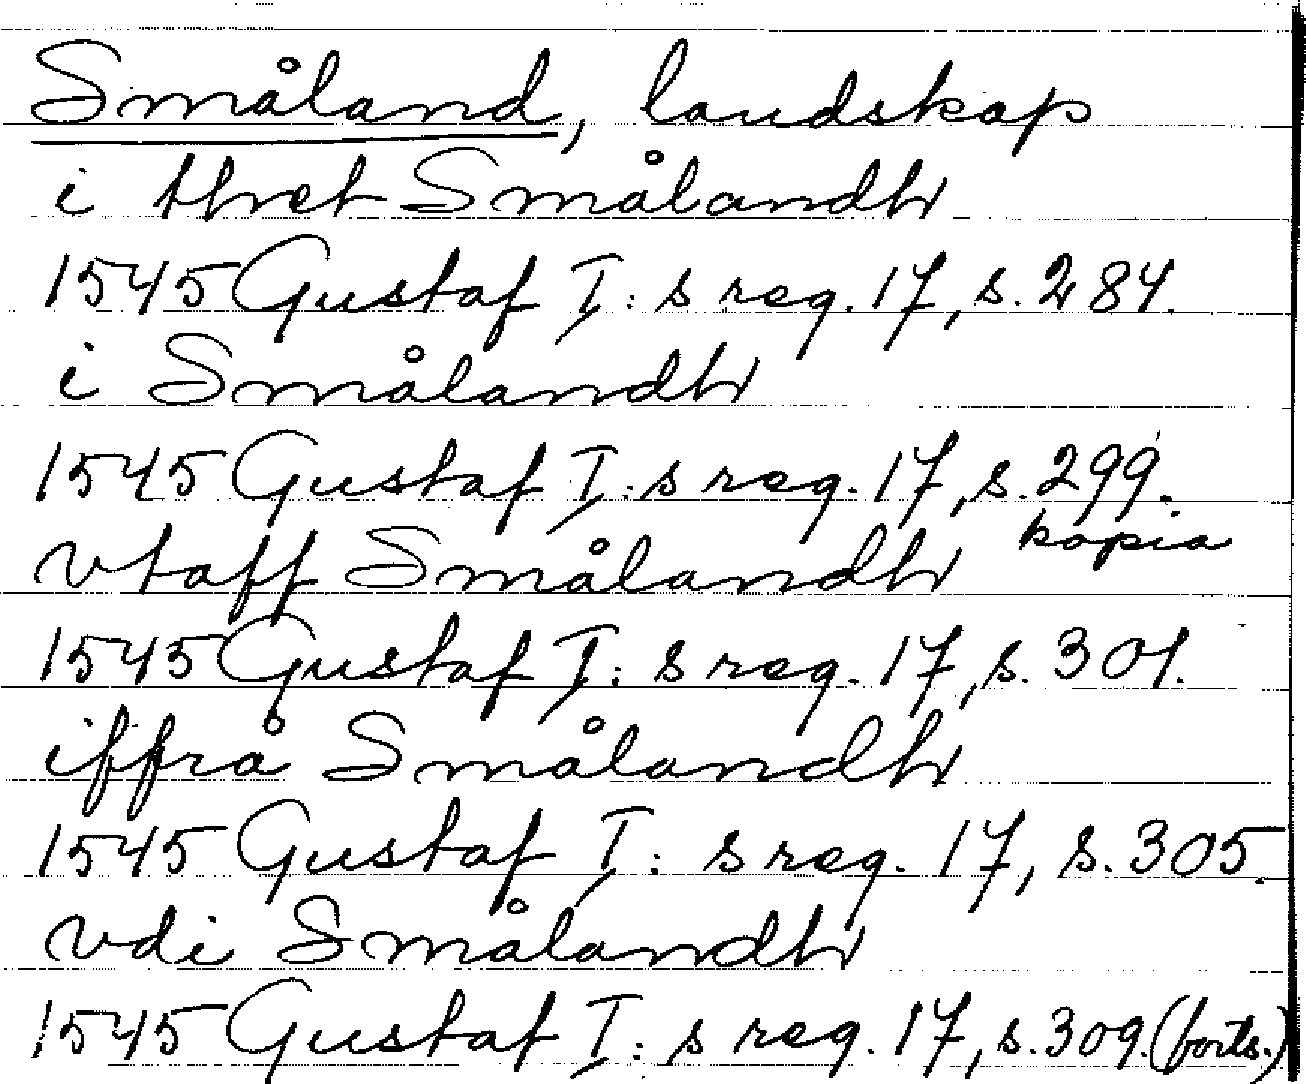 Småland, landskap
i thet Smålandh
1545 Gustaf I:s reg. 17, s. 284.
i Smålandh
1545 Gustaf I:s reg. 17, s. 299.
vtaff Smålandh kopia
1545 Gustaf I:s reg. 17, s. 301.
iffrå Smålandh
1545 Gustaf I:s reg. 17, s. 305.
vdi Smålandh
1545 Gustaf I:s reg. 17, s. 309. (forts.)